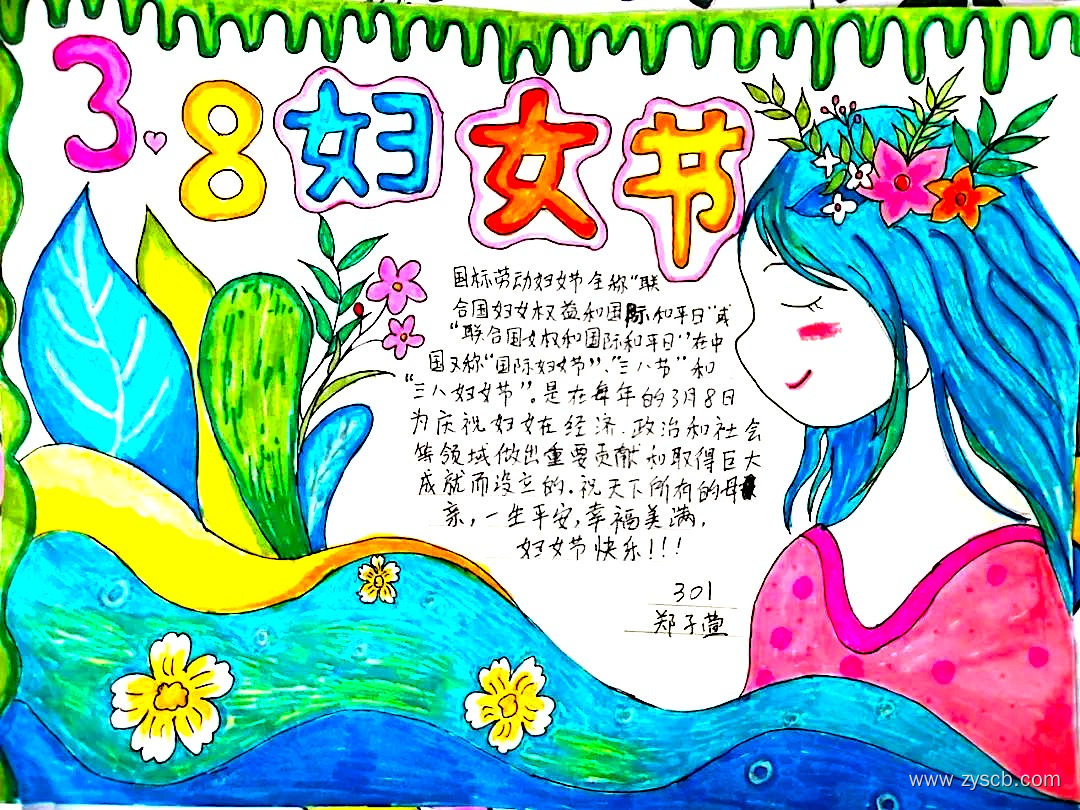 3.8妇女节
国标劳动妇女节全称“联
合国妇女权益和国际和平日”或
“联合国女权和国际和平日”在中
国又称“国际妇女节”、“三八节”和
“三八妇女节”。是在每年的3月8日
为庆祝妇女在经济、政治和社会
等领域做出重要贡献和取得巨大
成就而设立的。祝天下所有的母
亲,一生平安,幸福美满,
妇女节快乐!!!
301
郑子萱
www.zyscb.com